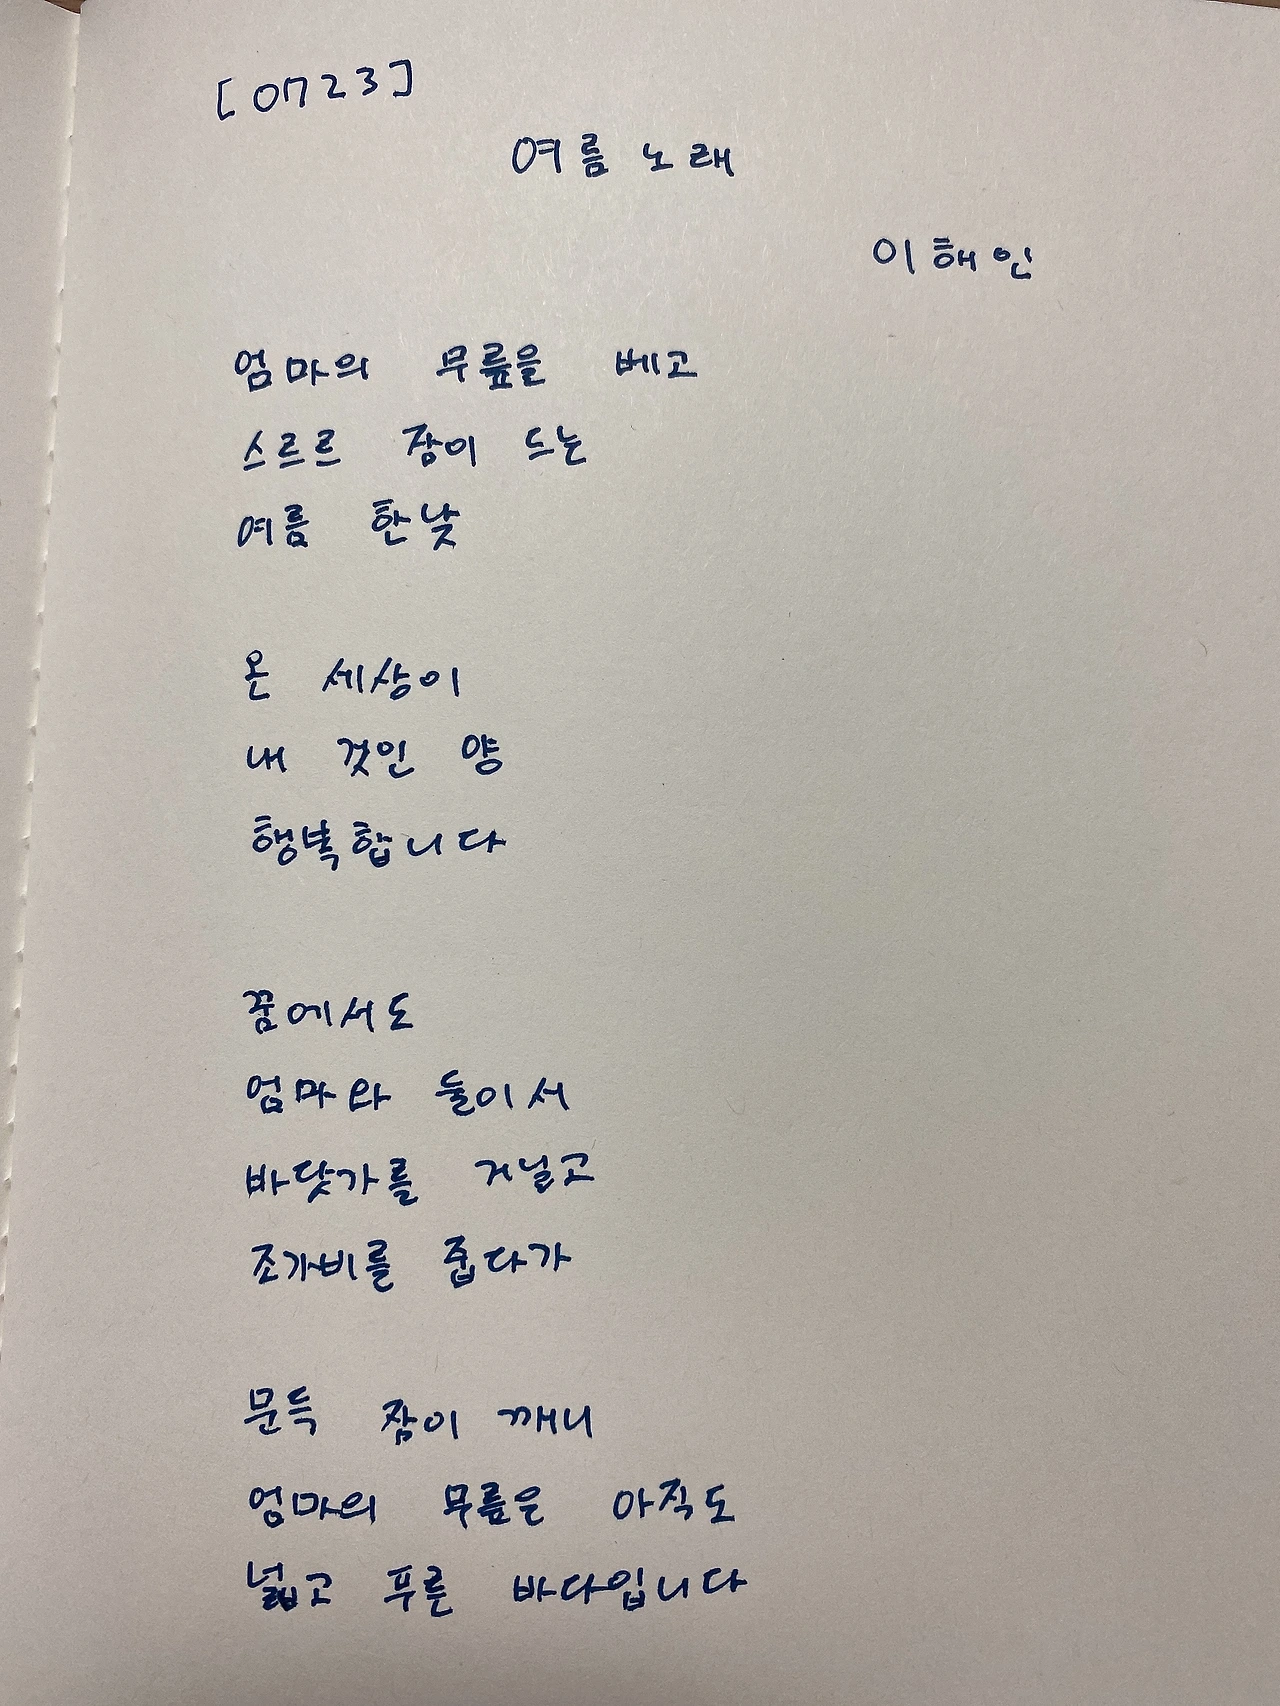 [0723]
여름 노래
이해인
엄마의 무릎을 베고
스르르 잠이 드는
여름 한낮
온 세상이
내 것인 양
행복합니다
꿈에서도
엄마와 둘이서
바닷가를 거닐고
조가비를 줍다가
문득 잠이 깨니
엄마의 무릎은 아직도
넓고 푸른 바다입니다